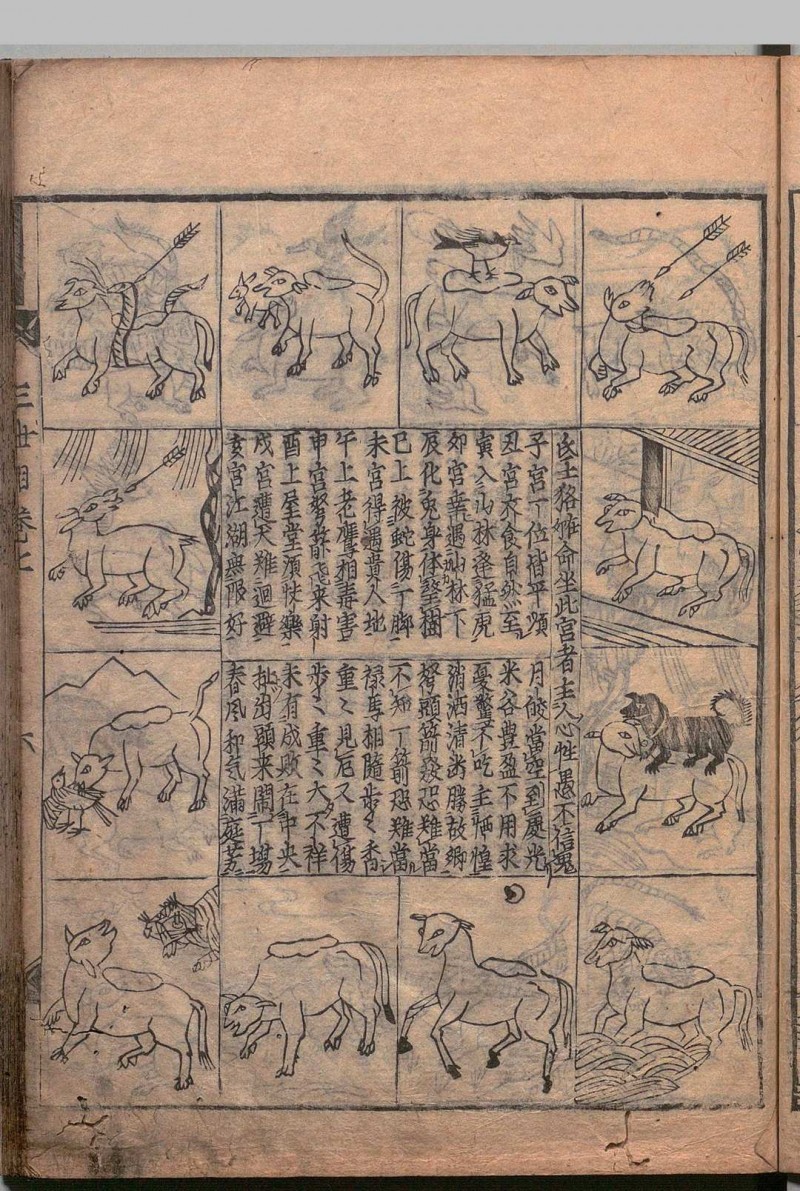 氐土狢姓命坐此宮者主人心性愚不信鬼
子宮丁位皆平順 月皎當空到處光
丑宮衣食自然至 米谷豊盈不用求
寅入山林逢猛虎 憂驚不吃主恓惶
卯宮幸遇山林下 消洒清涼勝故鄉
辰化兔身体墜樹 弩頭箭發恐難當
巳上被蛇傷丁脚 不知丁箭恐難當
未宮得遇貴人地 禄馬相隨步〻香
午上老鷹相毒害 重〻見厄又遭傷
申宮弩箭飛來射 步〻重〻大不祥
酉上屋堂須快樂 未有成敗在中央
戌宮遭犬難迴避 出頭來鬧丁場
亥宮江湖無限好 春風和氣滿庭芳
三世相卷上
六